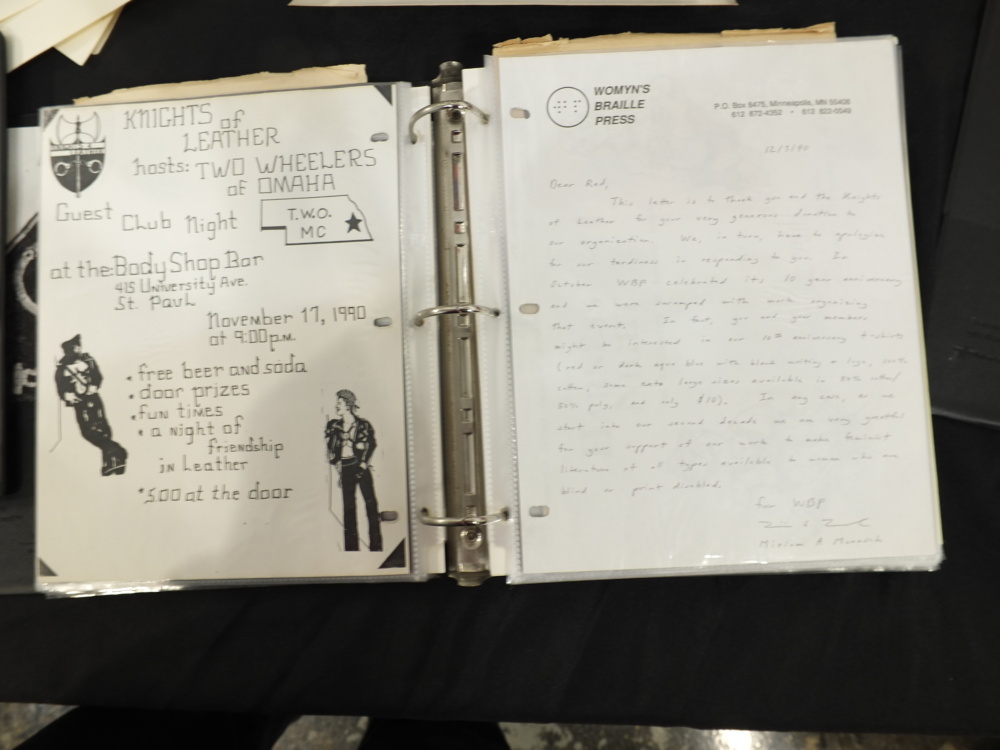 KNIGHTS of
LEATHER
hosts: TWO WHEELERS
of OMAHA
Guest Club Night
T.W.O.
MC
at the: Body Shop Bar
415 University Ave.
St. Paul
November 17, 1990
at 9:00 p.m.
• free beer and soda
• door prizes
• fun times
• a night of
friendship
in Leather
*5.00 at the door
WOMYN'S
BRAILLE
PRESS
P.O. Box 8475, Minneapolis, MN 55408
612 872-4352 • 612 822-0549
12/3/90
Dear Red,
This letter is to thank you and the Knights
of Leather for your very generous donation to
our organization. We, in turn, have to apologize
for our tardiness in responding to you. In
October WBP celebrated its 10 year anniversary
and we were swamped with work organizing
that event. In fact, you and your members
might be interested in our 10th anniversary t-shirts
(red or dark aqua blue with black writing & logo, 100%
cotton, some extra large sizes available in 50% cotton/
50% poly, and only $10). In any case, as we
start into our second decade we are very grateful
for your support of our work to make feminist
literature of all types available to women who are
blind or print disabled.
for WBP